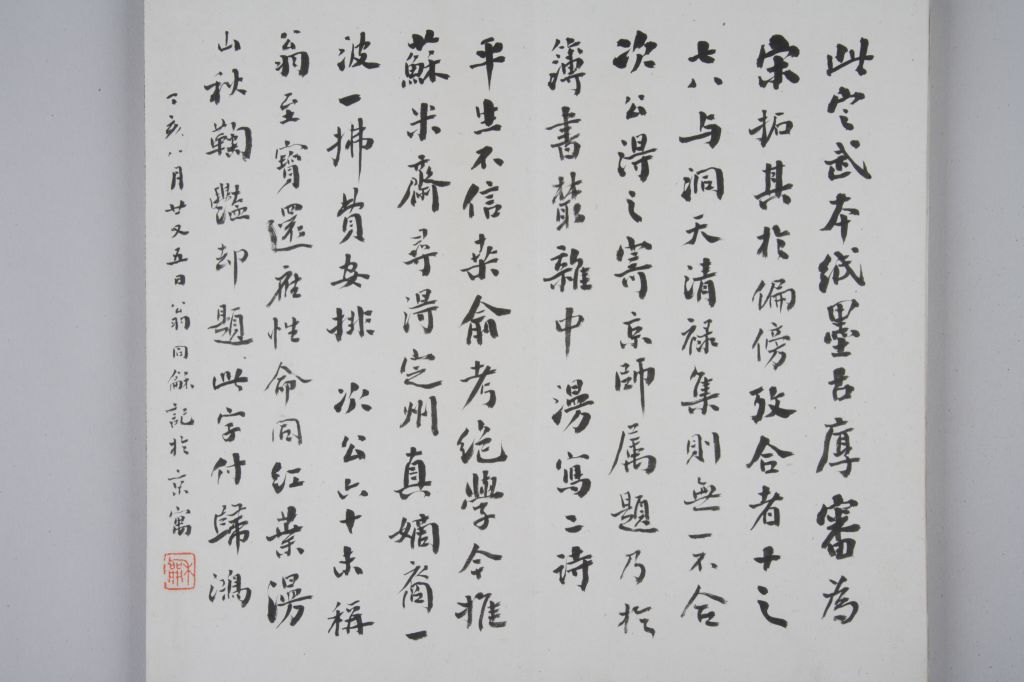 此定武本紙墨古厚審為
宋拓其於偏傍攷合者十之
七八与洞天清禄集則無一不合
次公得之寄京師属題乃於
簿書叢雜中漫寫二詩
平生不信桒俞考絶學今推
蘇米齋尋得定州真嫡裔一
波一拂費安排 次公六十未稱
翁至寶還應性命同紅葉漫
山秋鞠豔却題此字付歸鴻
丁亥八月廿又五日翁同龢記於京寓